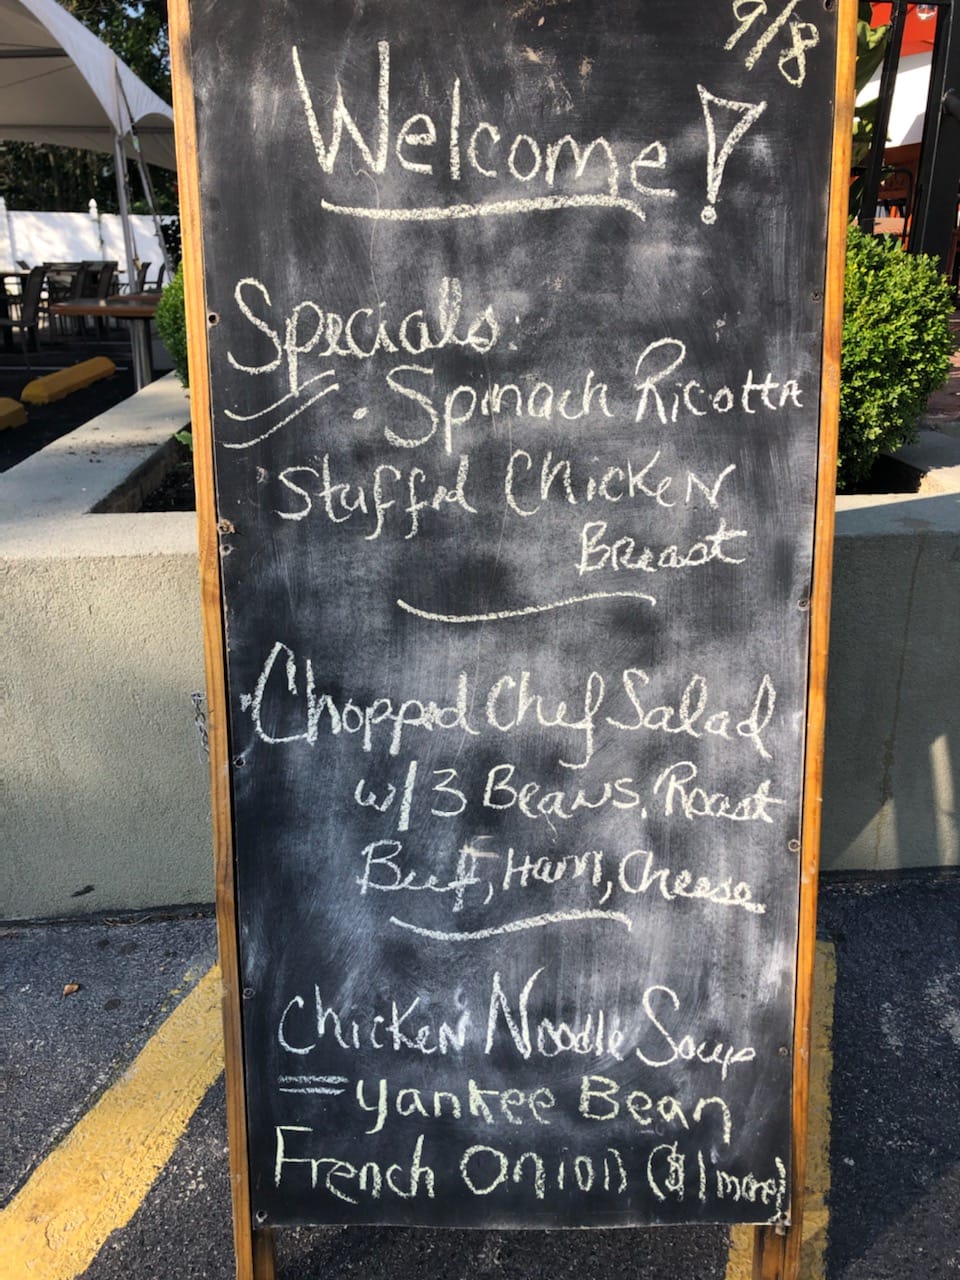 9/8
Welcome!
Specials:
• Spinach Ricotta
Stuffed Chicken
Breast
Chopped Chef Salad
w/ 3 Beans, Roast
Beef, Ham, Cheese
Chicken Noodle Soup
= Yankee Bean
French Onion ($1 more)